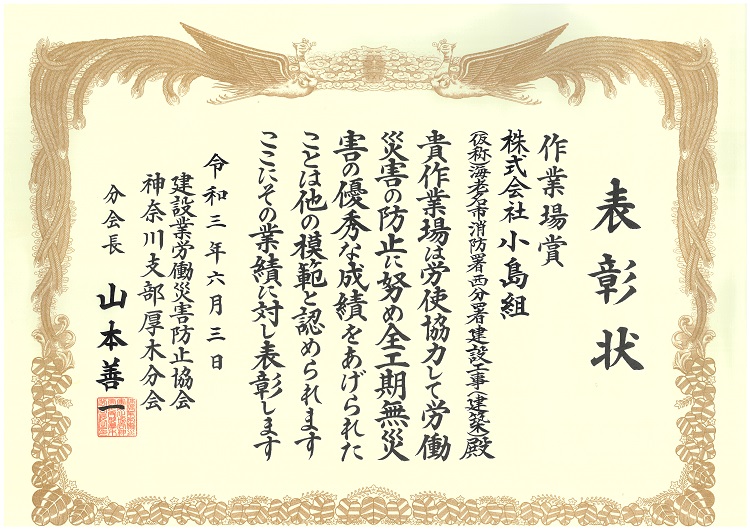 表彰状
作業場賞
株式会社小島組
(仮称)海老名市消防署西分署建設工事(建築)殿
貴作業場は労使協力して労働
災害の防止に努め全工期無災
害の優秀な成績をあげられた
ことは他の模範と認められます
ここにその業績に対し表彰します
令和三年六月三日
建設業労働災害防止協会
神奈川支部厚木分会
分会長 山本善一